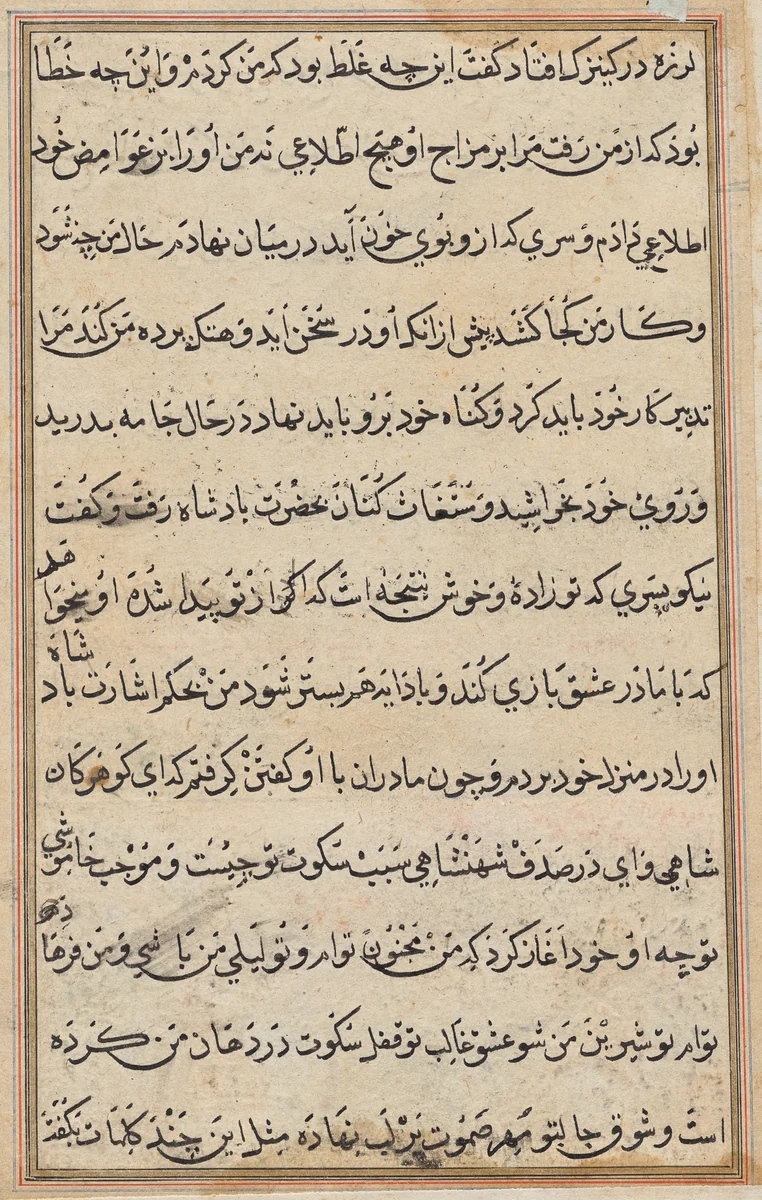 لرزه در کنیزک افتاد گفت این چه غلط بود که من کردم و این چه خطا
بود که از من رفت مرا بر مزاج او هیچ اطلاعی نه من او را بر غوامض خود
اطلاعی دادم و سری که ازو بوی خون آید در میان نهادم حال من چه شود
و کار من کجا کشد پیش از انکه او در سخن آید و هتک پرده من کند مرا
تدبیر کار خود باید کرد و گناه خود برو باید نهاد در حال جامه بدرید
و روی خود بخراشید و مستغاث کنان بحضرت بادشاه رفت و گفت
نیکو پسری که تو زادۀ و خوش نتیجه است که اگر از تو پیدا شده او میخواهد
که با مادر عشق بازی کند و با دایه هم بستر شود من بحکم اشارت بادشاه
او را در منزل خود بردم و چون مادران با او گفتن گرفتم که ای گوهر کان
شاهی و ای در صدف شهنشاهی سبب سکوت تو چیست و موجب خاموشی
تو چه او خود آغاز کرد که من مجنون توام و تو لیلی من باشی و من فرهاد
توام تو شیرین من شو عشق غالب تو قفل سکوت در دهان من کرده
است و شوق جالبتو مهر صموت بر لب نهاده مثل این چند کلمات بگفت